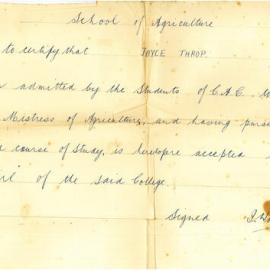 School of Agriculture
to certify that JOYCE THROP.
admitted by the Students of C.A.C.
Mistress of Agriculture, and having
course of Study, is heretofore accepted
of the said College.
Signed